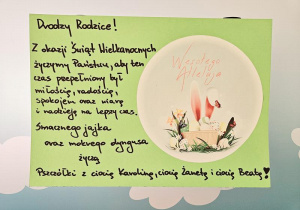 Drodzy Rodzice!
Z okazji Świąt Wielkanocnych
życzymy Państwu, aby ten
czas przepełniony był
miłością, radością,
spokojem oraz wiarą
i nadzieją na lepszy czas.
Smacznego jajka
oraz mokrego dyngusa
życzą
Pszczółki z ciocią Karoliną, ciocią Żanetą i ciocią Beatą!
Wesołego
Alleluja